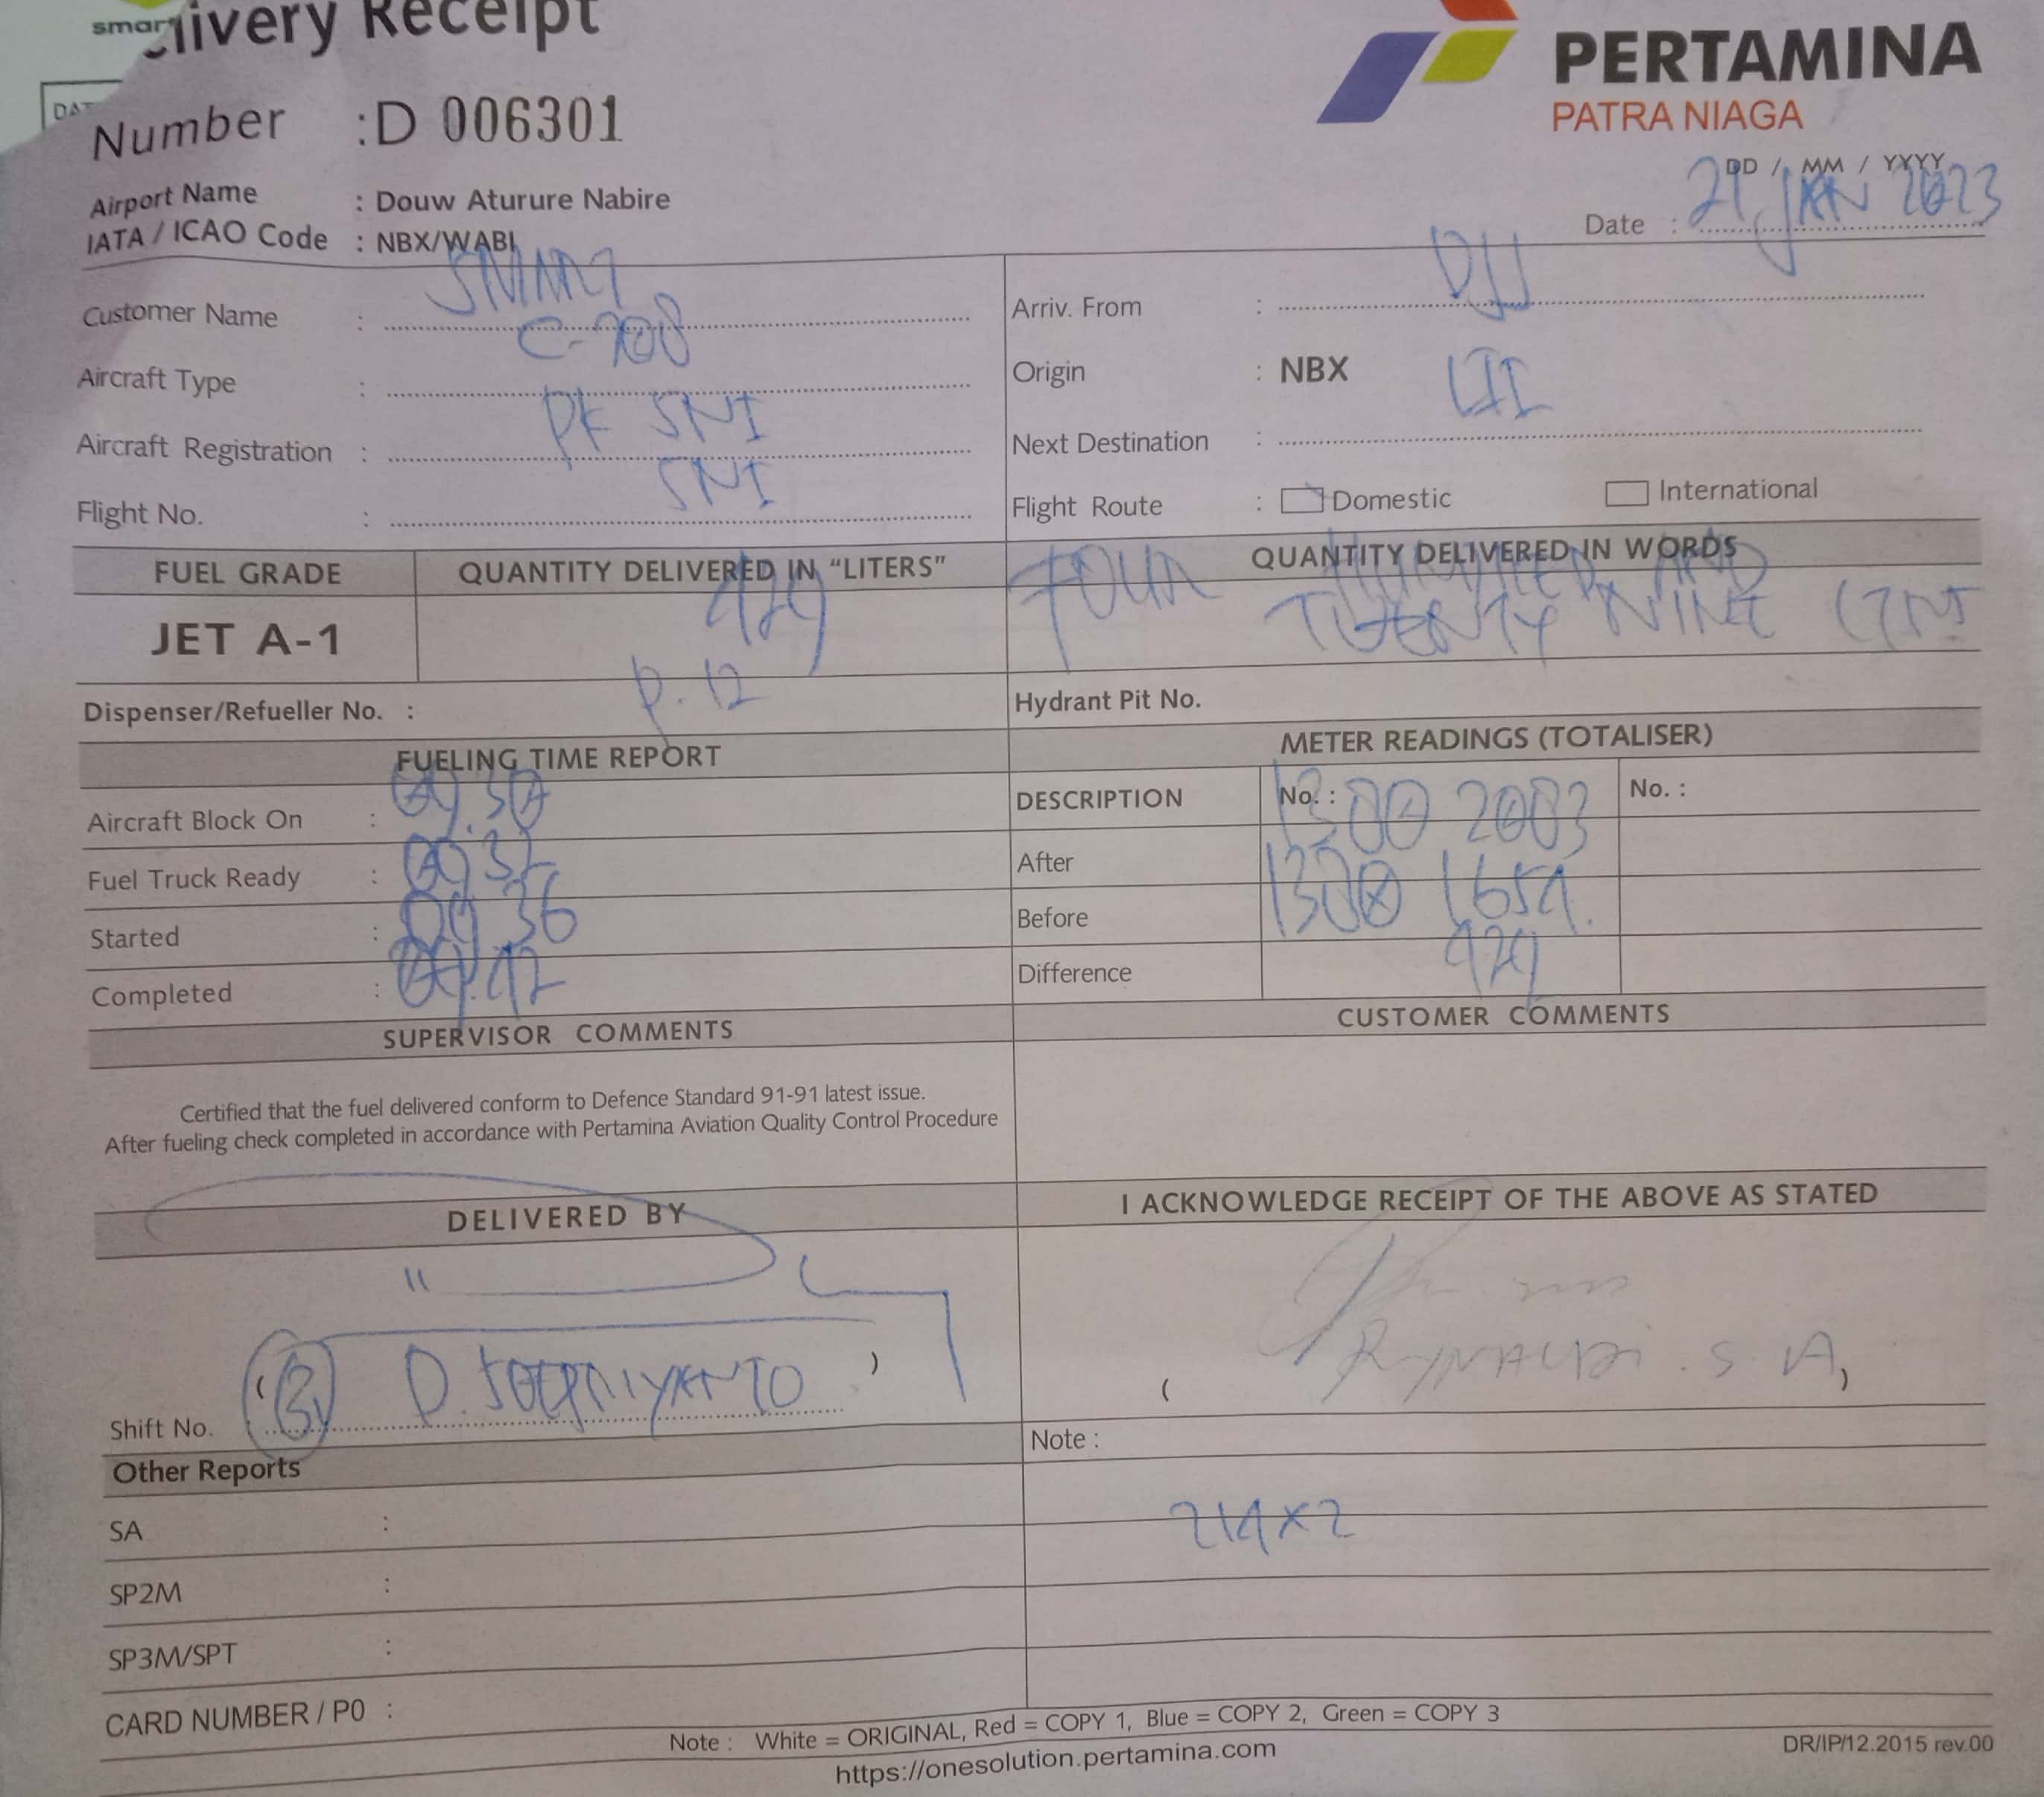 smart
Delivery Receipt
PERTAMINA
PATRA NIAGA
Number : D 006301
DD / MM / YYYY
Date : 21 JAN 2023
Airport Name : Douw Aturure Nabire
IATA / ICAO Code : NBX/WABI
Customer Name : SMART
Arriv. From : DJJ
Aircraft Type : C-208
Origin : NBX
Aircraft Registration : PK SNI
Next Destination :
Flight No. : SNI
Flight Route : Domestic International
FUEL GRADE QUANTITY DELIVERED IN "LITERS" QUANTITY DELIVERED IN WORDS
JET A-1 429 FOUR HUNDRED AND TWENTY NINE
Dispenser/Refueller No. : P. 12
Hydrant Pit No.
FUELING TIME REPORT METER READINGS (TOTALISER)
Aircraft Block On :
DESCRIPTION No. : No. :
Fuel Truck Ready :
After 1300 2083
Started : 09 36
Before 1300 1654
Completed : 09.42
Difference 429
SUPERVISOR COMMENTS CUSTOMER COMMENTS
Certified that the fuel delivered conform to Defence Standard 91-91 latest issue.
After fueling check completed in accordance with Pertamina Aviation Quality Control Procedure
DELIVERED BY I ACKNOWLEDGE RECEIPT OF THE ABOVE AS STATED
Shift No. ( D. )
( S. A, )
Other Reports
Note :
SA :
214x2
SP2M :
SP3M/SPT :
CARD NUMBER / P0 :
Note : White = ORIGINAL, Red = COPY 1, Blue = COPY 2, Green = COPY 3
https://onesolution.pertamina.com
DR/IP/12.2015 rev.00